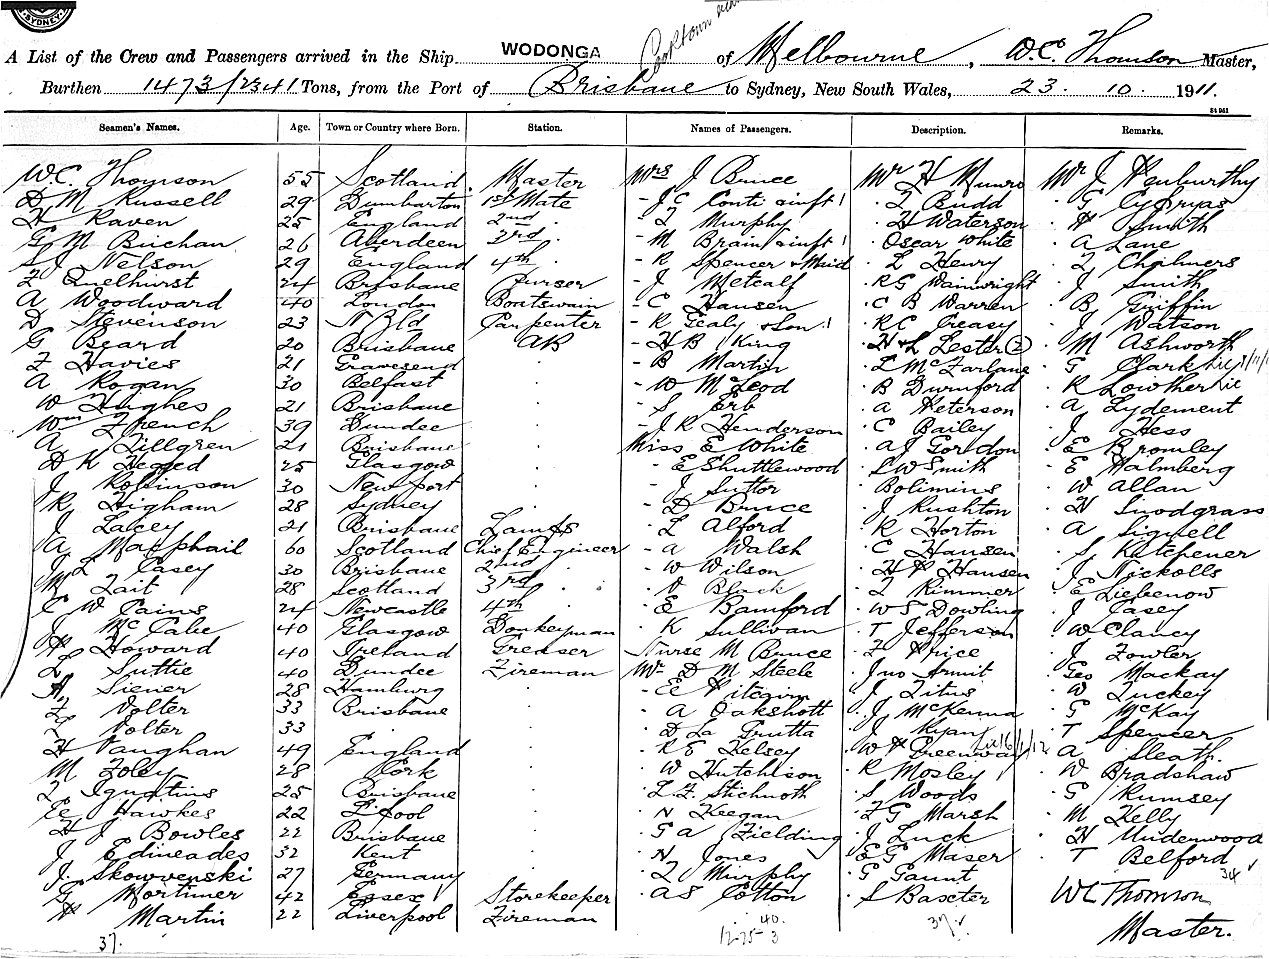 SYDNEY
Cooktown
A List of the Crew and Passengers arrived in the Ship WODONGA of Melbourne, W.C. Thomson Master,
Burthen 1473/2341 Tons, from the Port of Brisbane to Sydney, New South Wales, 23. 10. 1911.
Seamen's Names. Age. Town or Country where Born. Station. Names of Passengers. Description. Remarks.
W.C. Thomson 55 Scotland. Master Mrs J Bruce Mr H Munro Mr J
D M Russell 29 Dumbarton 1st Mate - J C Conti & inft 1 · T Budd · G
H Raven 25 England 2nd - T Murphy · H Waterson · H Smith
G M Buchan 26 Aberdeen 3rd. - M Brain & inft 1 · Oscar White · A Lane
S J Nelson 29 England 4th - R Spencer & Maid · L Henry · T Chalmers
24 Brisbane Purser - J Metcalf · R G Wainwright · J Smith
A Woodward 40 London Boatswain - C Hansen · C B Warren · B Griffin
D Stevenson 23 N Zld Carpenter - R Gealy & Son 1 · R C Creasy · J Watson
G Beard 20 Brisbane AB - H B King · H & L Lester (2) · M Ashworth
F Davies 21 Gravesend · - B Martin · L McFarlane · G Clark
A Rogan 30 Belfast · - W McLeod · B Durnford · R Lowther
W Hughes 21 Brisbane · - S Erb · A Peterson · A Lydement
Wm French 39 Dundee · - J R Henderson · C Bailey · J Hess
A Tillgren 21 Brisbane · Miss E White · A J Gordon · E Bromley
D K 25 Glasgow · - E Shuttlewood · L W Smith · E Halmberg
J Robinson 30 Newport · - J Suttor · Bolimins · W Allan
R Higham 28 Sydney · - D Bruce · J Rushton · H Snodgrass
J Lacey 21 Brisbane Lamps - L Alford · R Horton · A Signell
A Macphail 60 Scotland Chief Engineer - A Walsh · C Hansen · S Kitchener
J L Casey 30 Brisbane 2nd - W Wilson · H P Hansen · J Nickolls
M Tait 28 Scotland 3rd - V Black · T Rimmer · E Liebenow
C W Cains 24 Newcastle 4th - E Bamford · W S Dowling · J Casey
J McCabe 40 Glasgow Donkeyman - K Sullivan · T Jefferson · W Clancy
H Howard 40 Ireland Greaser Nurse M Bruce · F Price · J Fowler
L Suttie 40 Dundee Fireman Mr D M Steele · Jno Armit · Geo Mackay
H Siener 28 Hamburg · - E Pitcairn · J Titus · W Tuckey
F Volter 33 Brisbane · · A Oakshott · J McKenna · G McKay
L Volter 33 · · D La Trutta · J Ryan · T Spencer
H Vaughan 49 England · · R E Kelsey · W H Greenway · A Sleath
M Foley 28 Cork · · W Hutchison · R Mosley · W Bradshaw
T Ignatius 25 Brisbane · · L F. Stichnoth · S Woods · G Rumsey
Hawkes 22 L'pool · · N Keegan · F G Marsh · M Kelly
H J Bowles 22 Brisbane · · G A Fielding · J Luck · H Underwood
J Edineades 32 Kent · · N Jones · E G Maser · T Belford
J. Skowvenski 27 Germany · · T Murphy · G Gaunt 34
G Mortimer 42 Essex Storekeeper · A S Cotton · S Baxter WC Thomson
H Martin 22 Liverpool Fireman Master.
37. 40. 37.
12-25 3